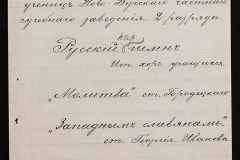 учениц Ново-Бугскаго частнаго
учебнаго заведенія 2 разряда.
Русскій гимнъ
хор
Исп. хоръ учащихся
„Молитва" ст. Городецкаго
„Западнымъ славянамъ"
ст. Георгія Иванова